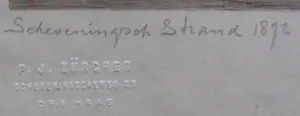 Scheveningsch Strand 1892
P. J. ZÜRCHER
DEN HAAG